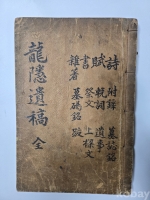 詩 附錄 墓誌銘
賦 輓詞 遺事
書 祭文 上樑文
雜著 墓碣銘 跋
龍隱遺稿 全
kobay